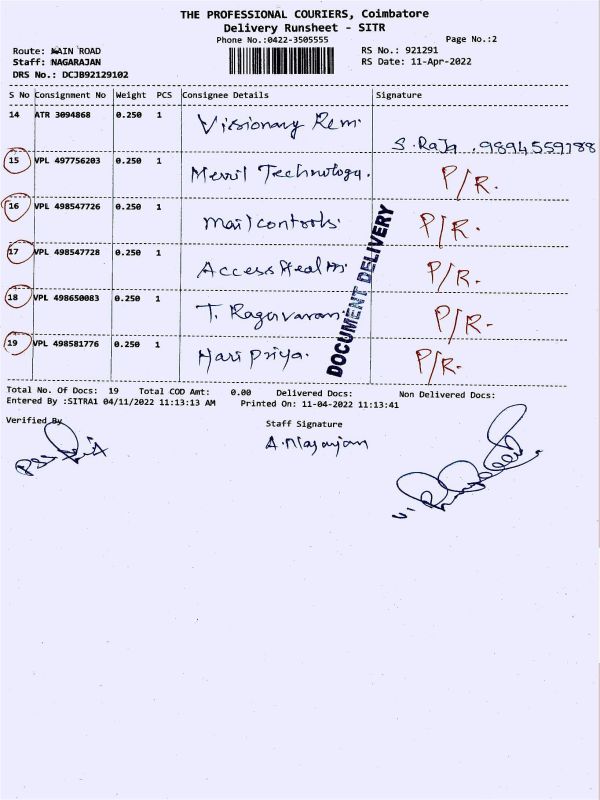 THE PROFESSIONAL COURIERS, Coimbatore
Delivery Runsheet - SITR
Phone No.:0422-3505555
Page No.:2
Route: MAIN ROAD
RS No.: 921291
Staff: NAGARAJAN
RS Date: 11-Apr-2022
DRS No.: DCJB92129102
S No Consignment No Weight PCS Consignee Details Signature
14 ATR 3094868 0.250 1 Vissionary Rem.
S. Raja . 9894559788
15 VPL 497756203 0.250 1 Meril Technology. P/R.
16 VPL 498547726 0.250 1 Mail controls. P/R.
17 VPL 498547728 0.250 1 Access Health. P/R.
18 VPL 498650083 0.250 1 T. Ragavaram P/R.
19 VPL 498581776 0.250 1 Hari Priya. P/R.
DOCUMENT DELIVERY
Total No. Of Docs: 19 Total COD Amt: 0.00 Delivered Docs: Non Delivered Docs:
Entered By :SITRA1 04/11/2022 11:13:13 AM Printed On: 11-04-2022 11:13:41
Verified By
Staff Signature
A. Nagarajan